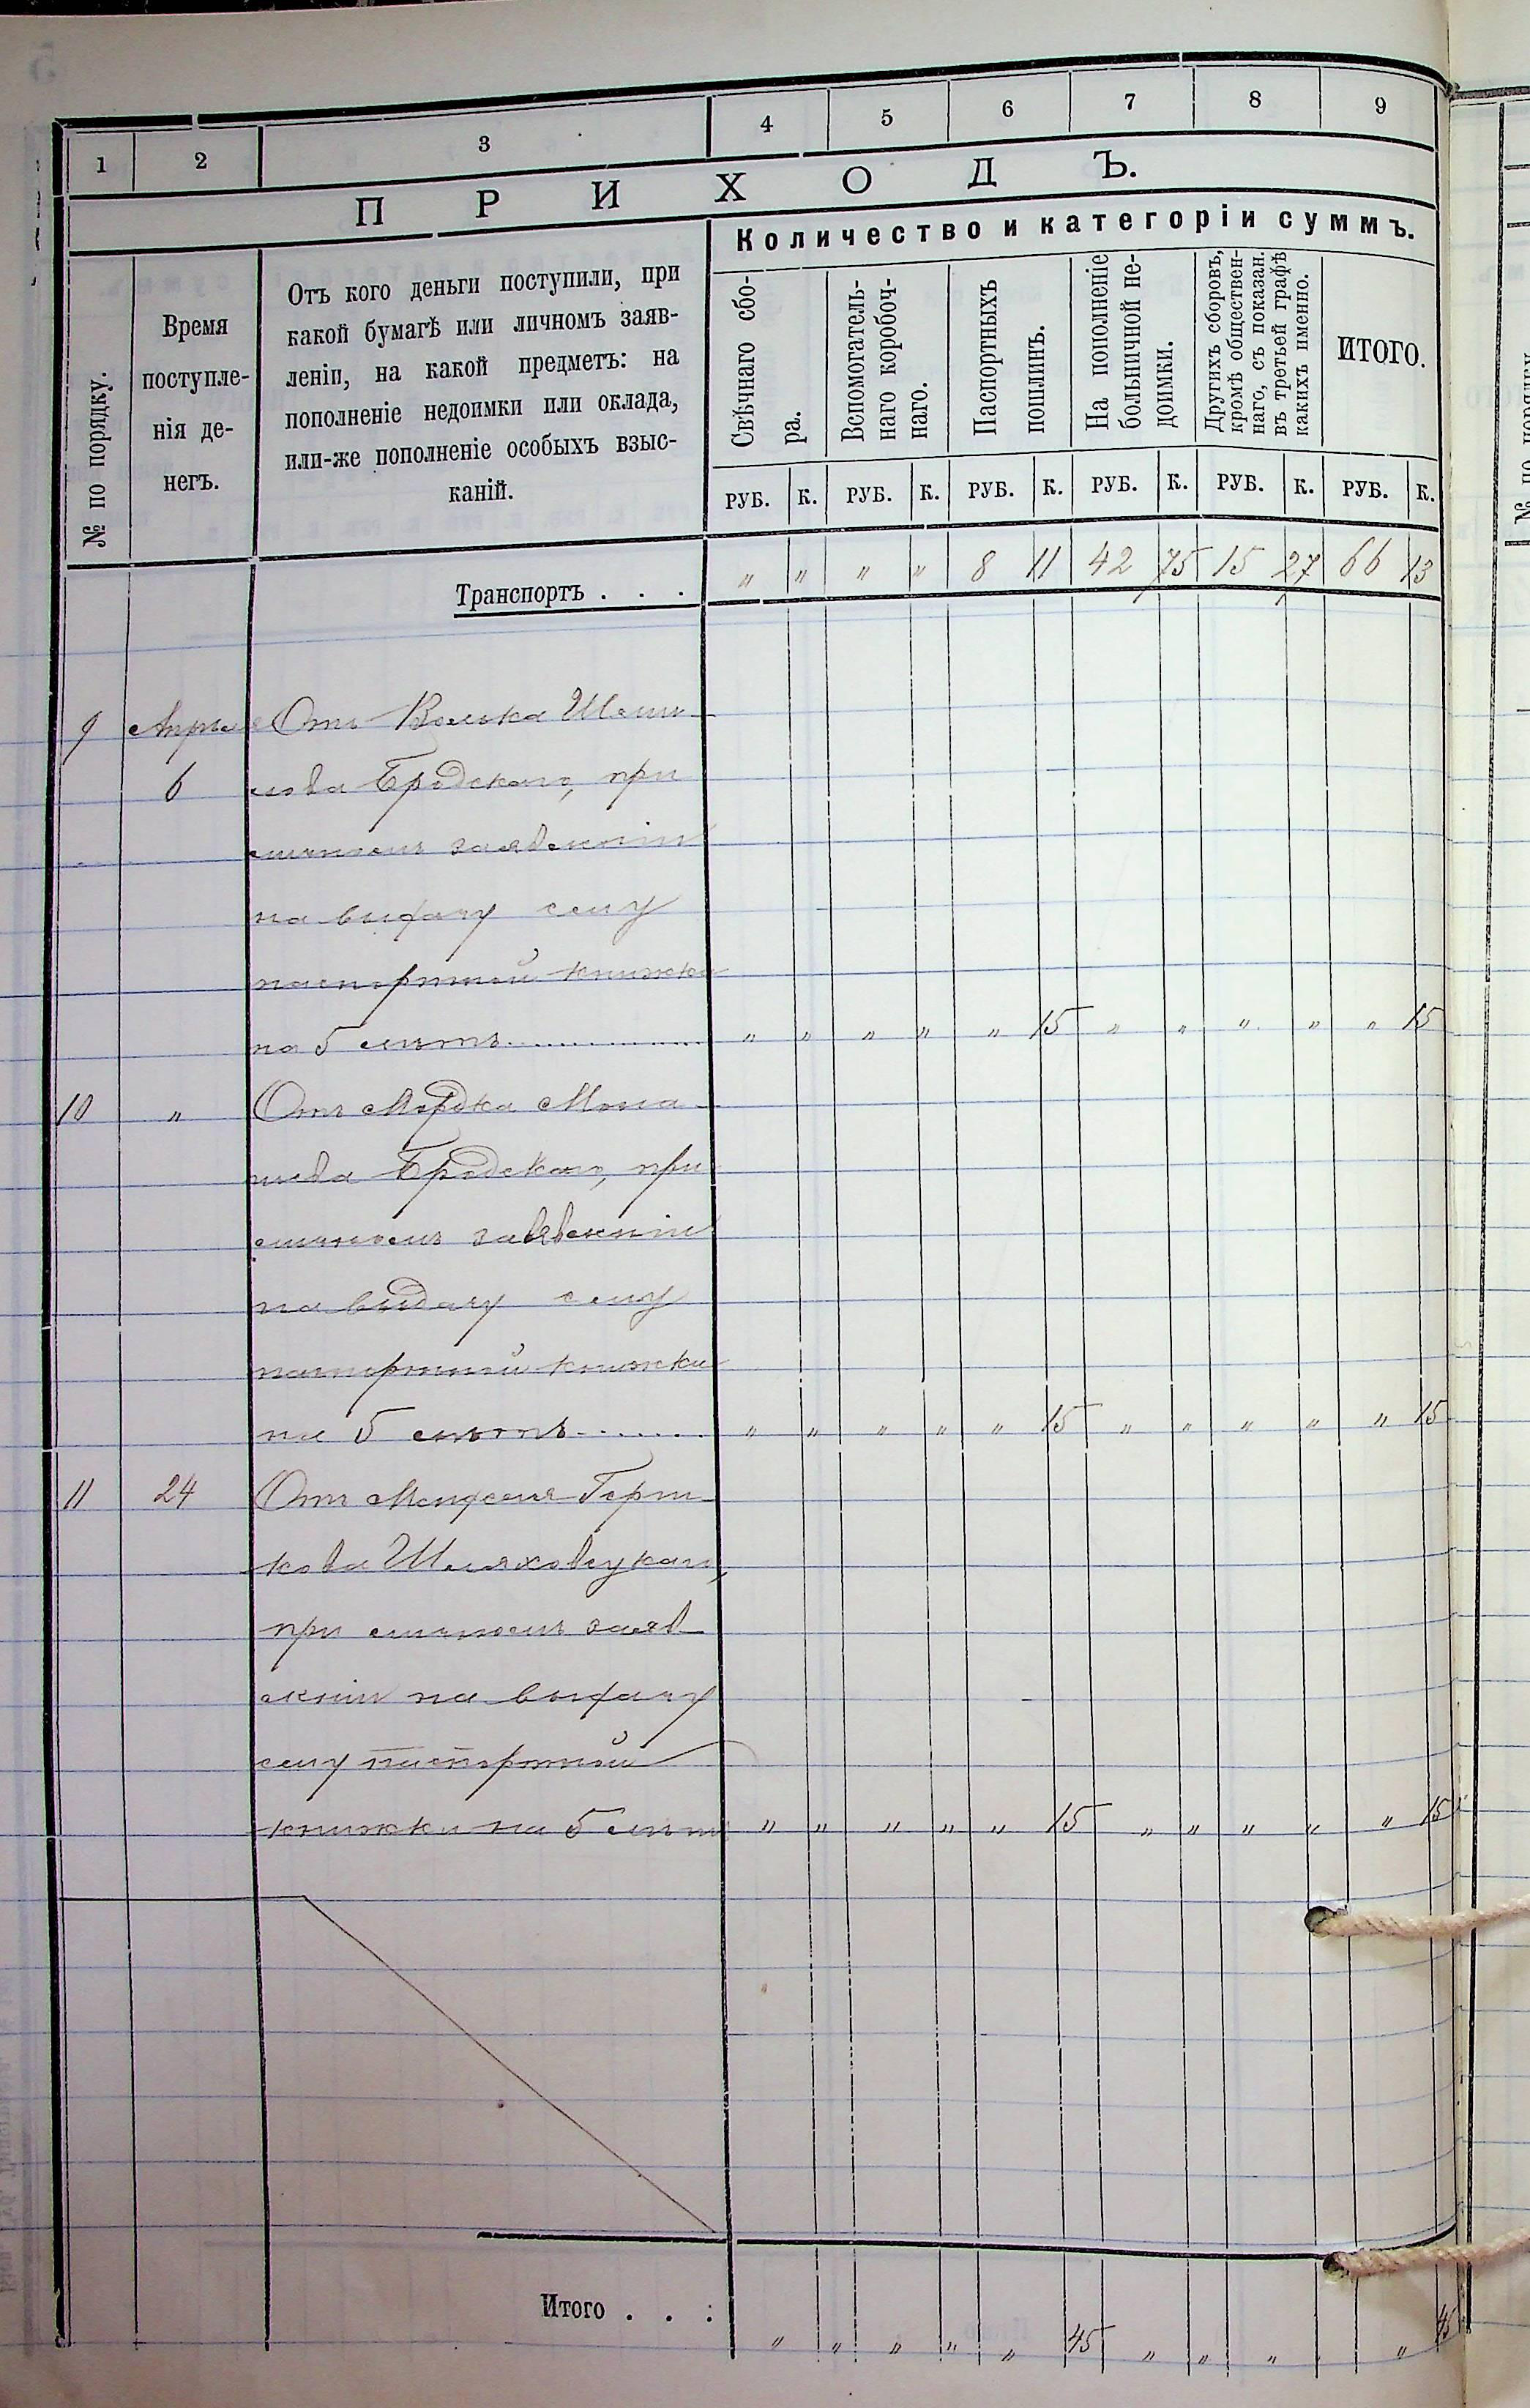 1 2 3 4 5 6 7 8 9
ПРИХОДЪ.
Количество и категоріи суммъ.
№ по порядку.
Время
поступле-
нія де-
негъ.
Отъ кого деньги поступили, при
какой бумагѣ или личномъ заяв-
леніи, на какой предметъ: на
пополненіе недоимки или оклада,
или-же пополненіе особыхъ взыс-
каній.
Свѣчнаго сбо-
ра.
Вспомогатель-
наго коробоч-
наго.
Паспортныхъ
пошлинъ.
На пополненіе
больничной не-
доимки.
Другихъ сборовъ,
кромѣ обществен-
наго, съ показан.
въ третьей графѣ
какихъ именно.
ИТОГО.
РУБ. К. РУБ. К. РУБ. К. РУБ. К. РУБ. К. РУБ. К.
Транспортъ . . . " " " " 8 11 42 75 15 27 66 13
9 Апрѣля Отъ Волька
6 Бродскаго, при
личномъ заявленіи
на выдачу ему
паспортной книжки
на 5 лѣтъ " " " " " 15 " " " " " 15
10 " Отъ Мордка
Бродскаго, при
личномъ заявленіи
на выдачу ему
паспортной книжки
на 5 лѣтъ " " " " " 15 " " " " " 15
11 24 Отъ Менделя Герш-
кова Шляховецкаго,
при личномъ заяв
леніи на выдачу
ему паспортной
книжки на 5 лѣтъ " " " " " 15 " " " " " 15
Итого . . : " " " " " 45 " " " " 45